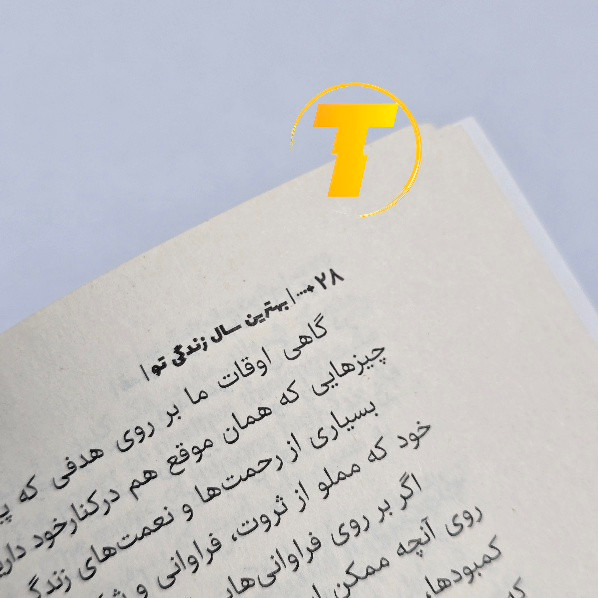 T
۲۸ ...| بهترین سال زندگی تو |
گاهی اوقات ما بر روی هدفی که
چیزهایی که همان موقع هم درکنارخود
بسیاری از رحمت‌ها و نعمت‌های
خود که مملو از ثروت، فراوانی و
اگر بر روی
روی آنچه ممکن
کمبودها،
که